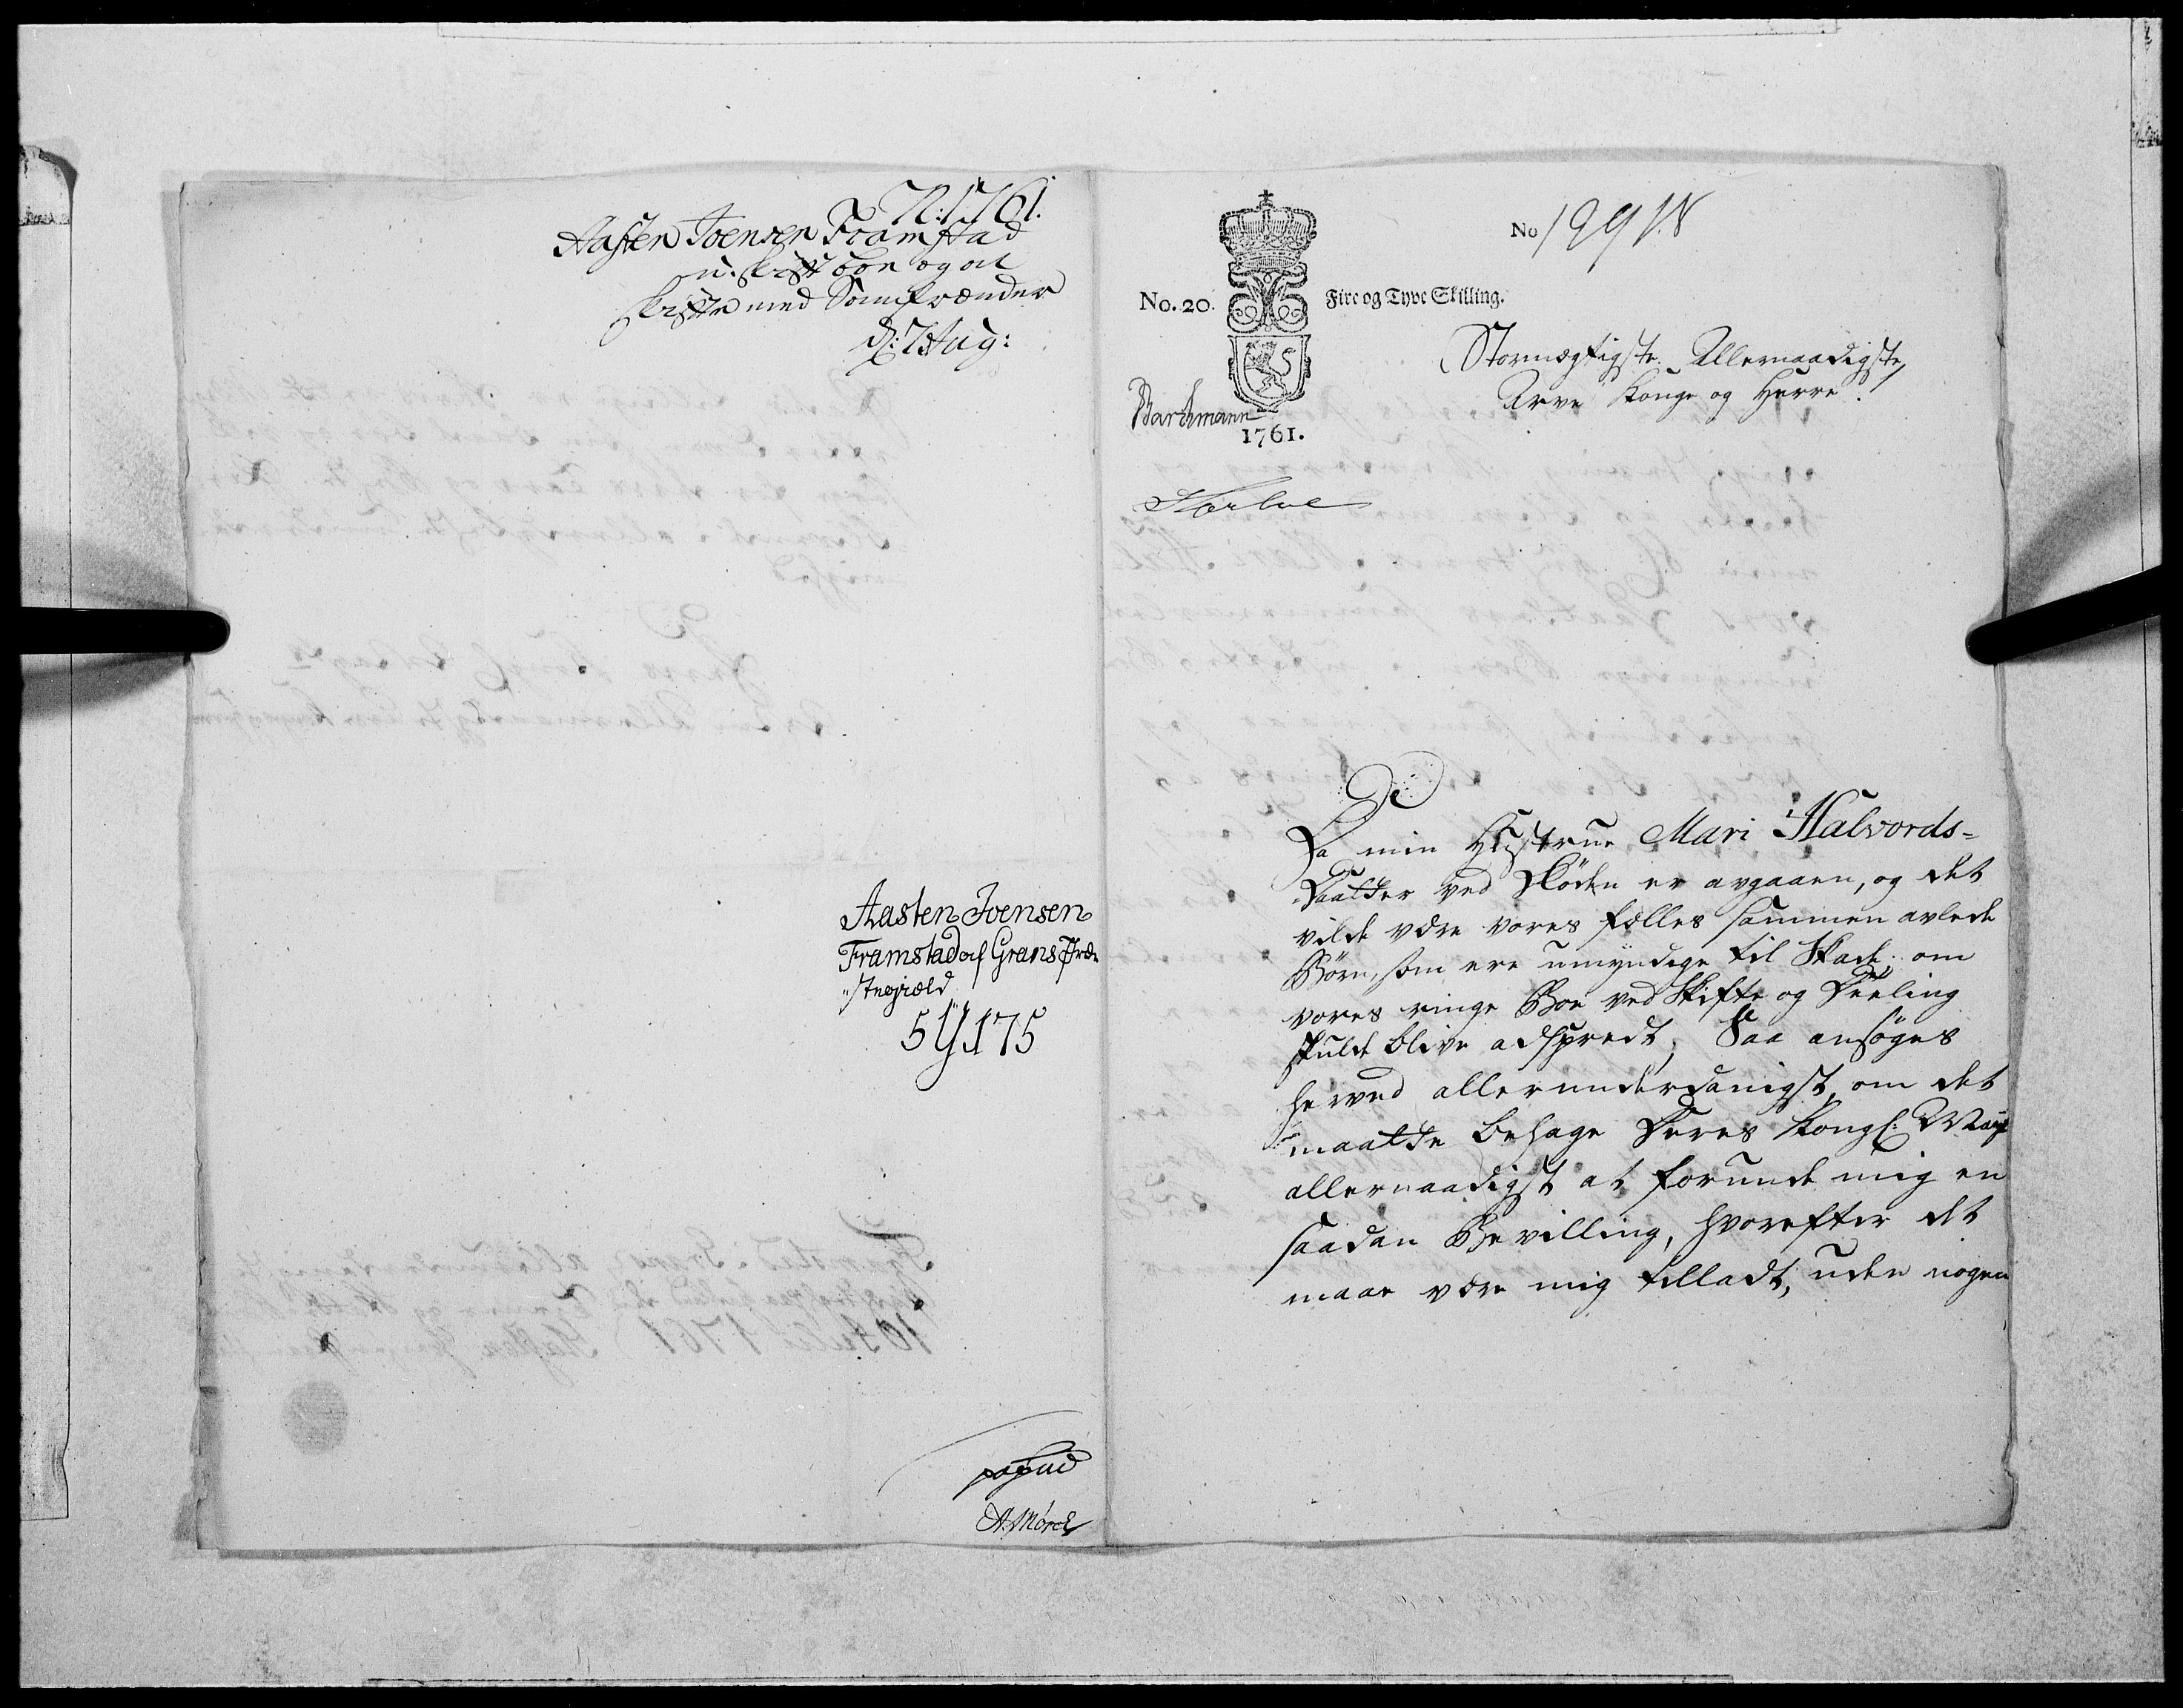 N: 1761.
Aasten Joensen Framstad
u. skift boe og at
skifte med Samfrænder
d: 7 Aug:
Aasten Joensen
Framstad af Grans Præ-
"stegiæld
5 175
A. Mörch
No 19918
No. 20. Fire og Tyve Skilling.
Stormægtigste Allernaadigste
Arve Konge og Herre!
Barthmann
1761.
Da min Hustrue Mari Halvords-
Daatter ved Döden er avgaaen, og det
vilde være vores fælles sammen avlede
Börn, som ere umyndige til Skade om
vores ringe Boe ved Skifte og Deeling
skulde blive adspredt; Saa ansöges
herved allerunderdanigst, om det
maatte behage Deres Kongl: Mayt
allernaadigst at forunde mig en
saadan Bevilling, hvorefter det
maae være mig tilladt, uden nogen